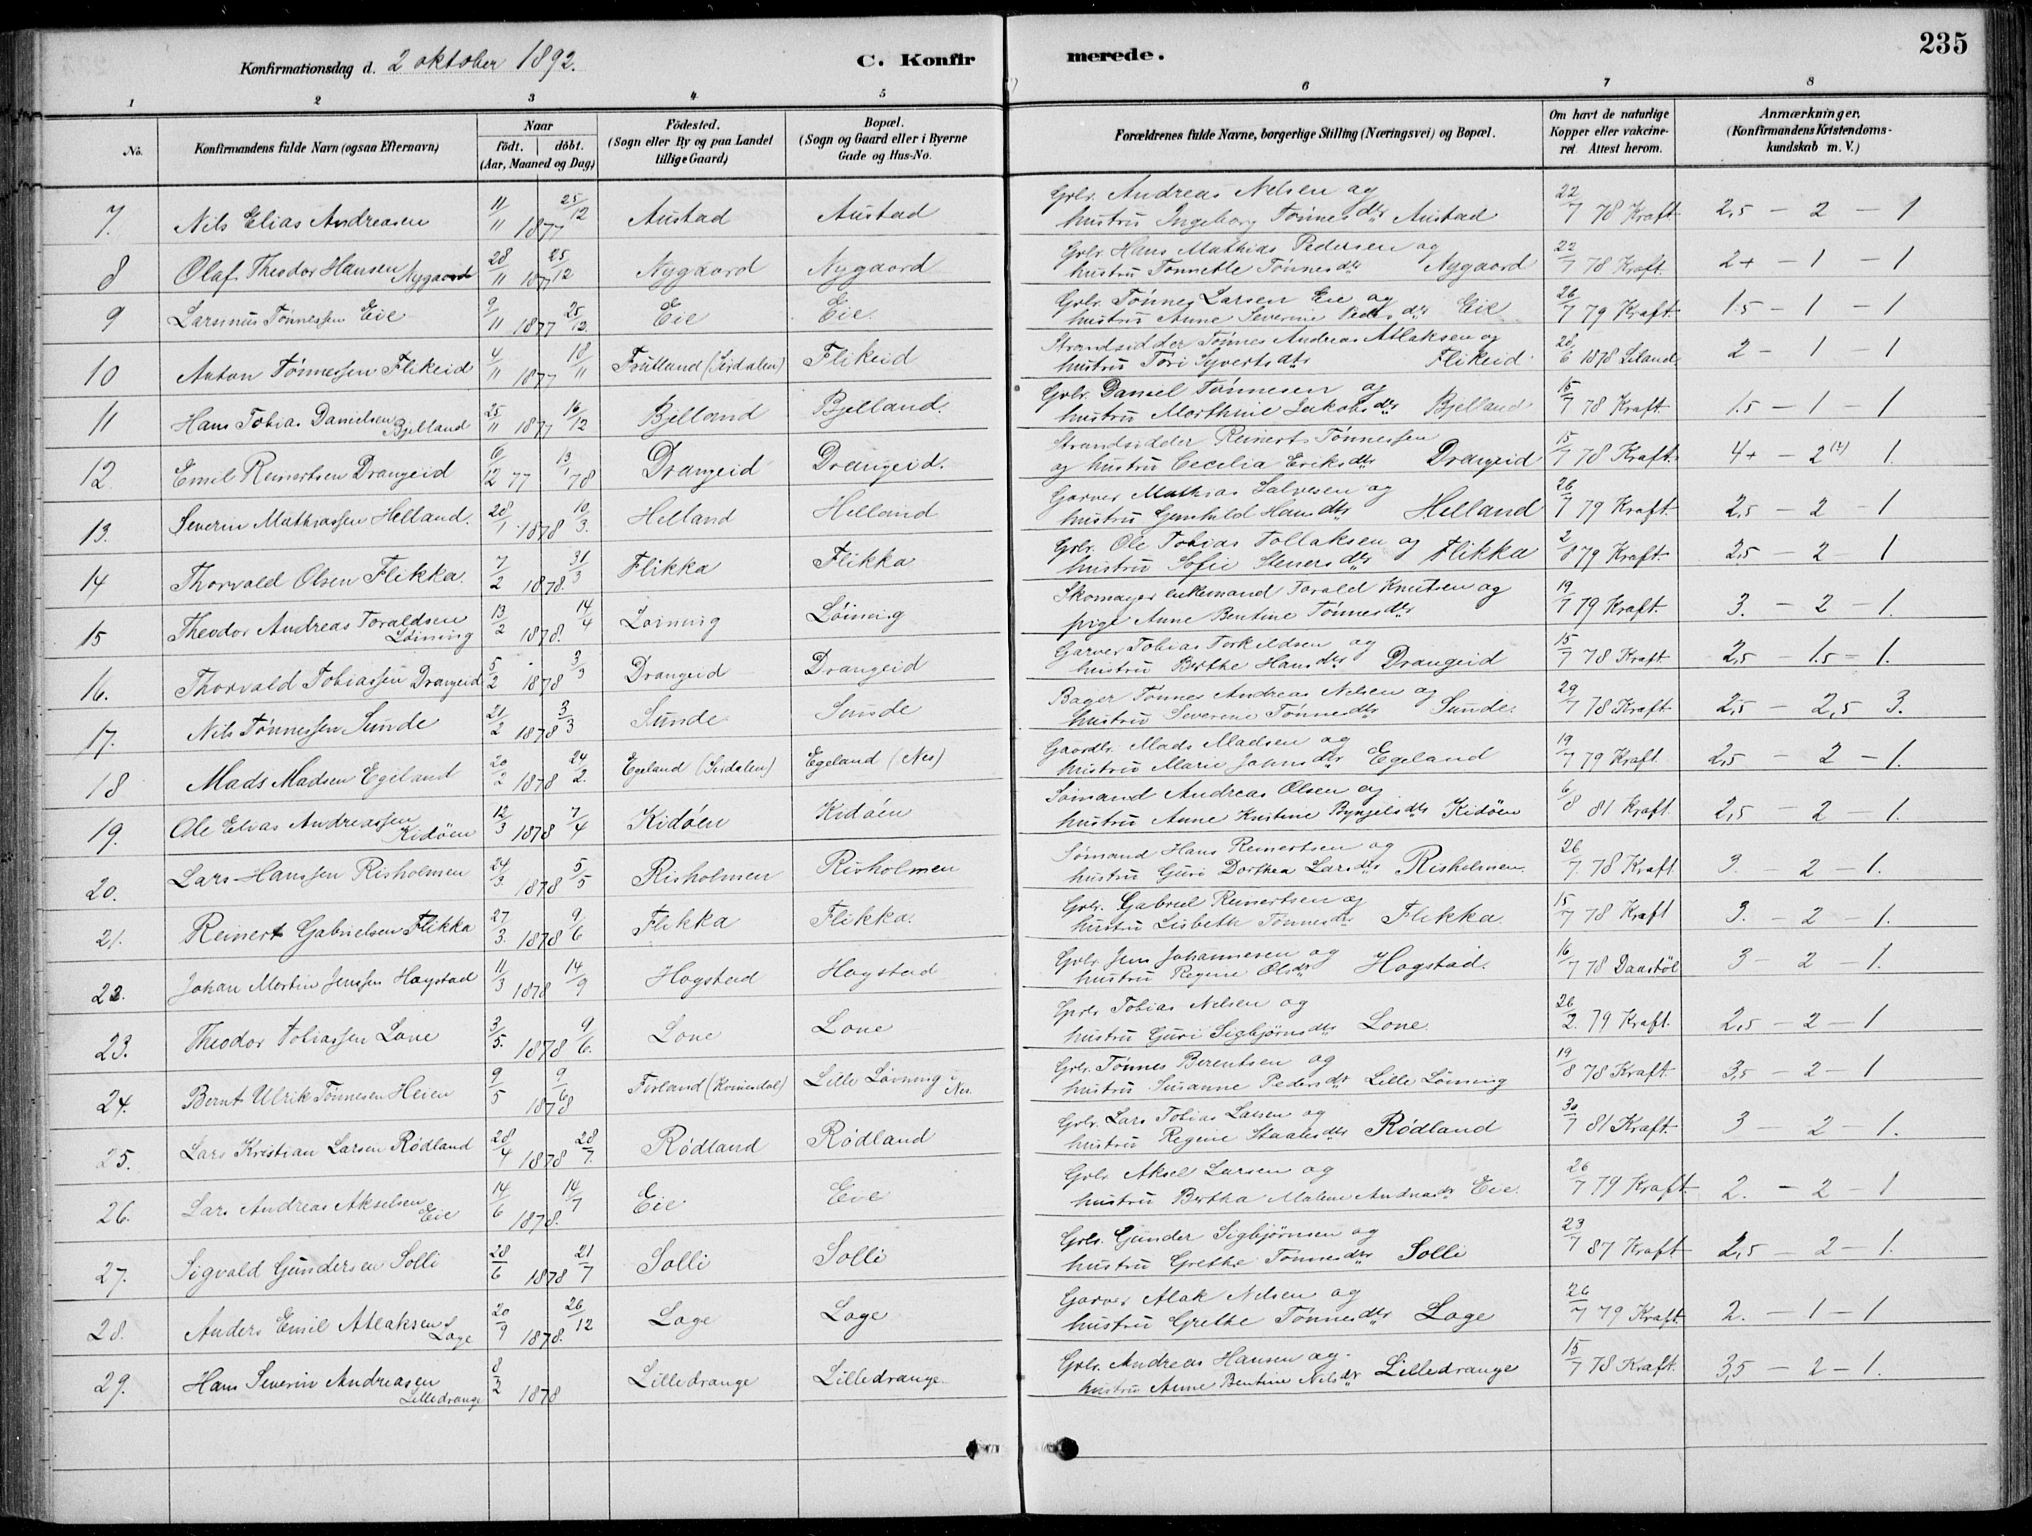 235
Konfirmationsdag d. 2 oktober 1892. C. Konfirmerede.
1 2 3 4 5 6 7 8
No. Konfirmandens fulde Navn (ogsaa Efternavn) Naar født. døbt. (Aar, Maaned og Dag) Fødested. (Sogn eller By og paa Landet tillige Gaard) Bopæl. (Sogn og Gaard eller i Byerne Gade og Hus-No. Forældrenes fulde Navne, borgerlige Stilling (Næringsvei) og Bopæl. Om havt de naturlige Kopper eller vakcineret. Attest herom. Anmærkninger. (Konfirmandens Kristendomskundskab m. V.)
7. Nils Elias Andreasen 11/11 1877 25/12 Austad Austad Gbr. Andreas Nelsen og hustru Ingeborg Tønnesdtr Austad 22/7 78 Kraft 2,5 – 2 – 1
8 Olaf Theodor Hansen Nygaard 28/11 1877 25/12 Nygaard Nygaard Gbr. Hans Mathias Pedersen og hustru Tonnette Tønnesdtr Nygaard 22/7 78 Kraft 2+ – 1 – 1
9 Larsinus Tønnessen Eie 9/11 1877 25/12. Eie Eie. Gbr. Tønnes Larsen Eie og hustru Anne Severine Pedersdtr Eie 26/7 79 Kraft 1.5 – 1 – 1
10 Anton Tønnessen Flikeid 4/11 1877 18/11 (Sirdalen) Flikeid Strandsidder Tønnes Andreas Atlaksen og hustru Tori Syvertsdtr Flikeid 28/6 1878 2 – 1 1
11 Hans Tobias Danielsen Bjelland 25/11 1877 16/12 Bjelland Bjelland. Gbr. Daniel Tønnesen og hustru Morthine Jakobsdtr Bjelland 15/7 78 Kraft 1.5 – 1 – 1
12. Emil Reinertsen Drangeid 6/12 77 13/1 78 Drangeid Drangeid. Strandsidder Reinert Tønnessen og hustru Cecilia Eriksdtr Drangeid 15/7 78 Kraft. 4+ – 2 1.
13. Severin Mathiassen Helland. 28/1 1878 10/3. Helland Helland Garver Mathias Salvesen og hustru Gunhild Hansdtr Helland 26/7 79 Kraft. 2,5 – 2 – 1
14 Thorvald Olsen Flikka. 7/2 1878 31/3 Flikka Flikka Gbr. Ole Tobias Tollaksen og hustru Sofie Stenersdtr Flikka 2/8 79 Kraft. 2,5 – 2 – 1
15 Theodor Andreas Toraldsen Løining 13/2 1878. 14/4 Løining Løining Skomager enkemand Torald Knutsen og pige Anne Bentine Tønnesdtr 19/7 79 Kraft 3. – 2 – 1.
16. Thorvald Tobiassen Drangeid 5/2 1878 3/3 Drangeid Drangeid Garver Tobias Torkildsen og hustru Berthe Hansdtr Drangeid 15/7 78 Kraft 2,5 1.5 – 1.
17. Nils Tønnessen Sunde 21/2 1878 3/3 Sunde Sunde Bager Tønnes Andreas Nelsen og hustru Severine Tønnesdtr Sunde. 29/7 78 Kraft 2,5 – 2,5 3.
18 Mads Madsen Egeland 20/2 1878 24/2. Egeland (Sirdalen) Egeland (Nes) Gaardbr. Mads Madsen og hustru Marie Johnsdtr Egeland 19/7 79 Kraft 2,5 – 2 – 1.
19. Ole Elias Andreassen Kidøen 12/3 1878 7/4 Kidøen Kidøen Sømand Andreas Olsen og hustru Anne Kristine Kidøen 6/8 81 Kraft 2,5 – 2 – 1.
20. Lars Hanssen Risholmen 24/3 1878 5/5 Risholmen Risholmen Sømand Hans Reinertsen og hustru Guri Dorthea Larsdtr Risholmen. 26/7. 78 Kraft 3. – 2 – 1.
21. Reinert Gabrielsen Flikka 27/3. 1878 9/6 Flikka Flikka. Gbr. Gabriel Reinertsen og hustru Lisbeth Tønnesdtr Flikka. 15/7 78 Kraft 3. – 2 – 1.
22. Johan Martin Jenssen Hogstad 11/3 1878 14/9 Hogstad Hogstad Gbr. Jens Johannesen og hustru Regine Olsdtr Hogstad. 16/7 78 Daastøl 3 – 2 – 1.
23. Theodor Tobiassen Lone 3/5. 1878 9/6. Lone Lone Gbr. Tobias Nelsen og hustru Guri Sigbjørnsdtr Lone 26/2. 79 Kraft. 2,5 – 2 – 1
24. Bernt Ulrik Tønnesen Heien 9/5 1878 9/6 (Kvinesdal) Lille Løvning i Nes. Gbr. Tønnes Berentsen og hustru Susanne Pedersdtr Lille Løning 19/8 78 Kraft. 3,5 – 2 – 1
25. Lars Kristian Larsen Rødland 28/4 1878 28/7. Rødland Rødland Gbr. Lars Tobias Larsen og hustru Regine Staalesdtr Rødland 30/7 81 Kraft. 3 – 2 – 1.
26. Lars Andreas Akselsen Eie 14/6 1878. 14/7 Eie Eie Gbr Aksel Larsen og hustru Bertha Malene Andreasdtr Eie. 26/7 79 Kraft. 2. – 2 – 1
27. Sigvald Gundersen Solli 28/6 1878 21/7 Solli Solli Gbr. Gunder Sigbjørnsen og hustru Grethe Tønnesdtr Solli 23/7 87 Kraft 2,5 – 2 – 1.
28. Anders Emil Atlaksen Loge 20/9 1878. 26/12 Loge Loge Garver Atlak Nelsen og hustru Grethe Tønnesdtr Loge 26/7 79 Kraft 2. – 1 – 1
29. Hans Severin Andreasen Lilledrange 8/2 1878 Lilledrange Lilledrange Gbr. Andreas Hansen og hustru Anne Bentine Nilsdtr Lilledrange 15/7 78 Kraft. 3,5 – 2 – 1.